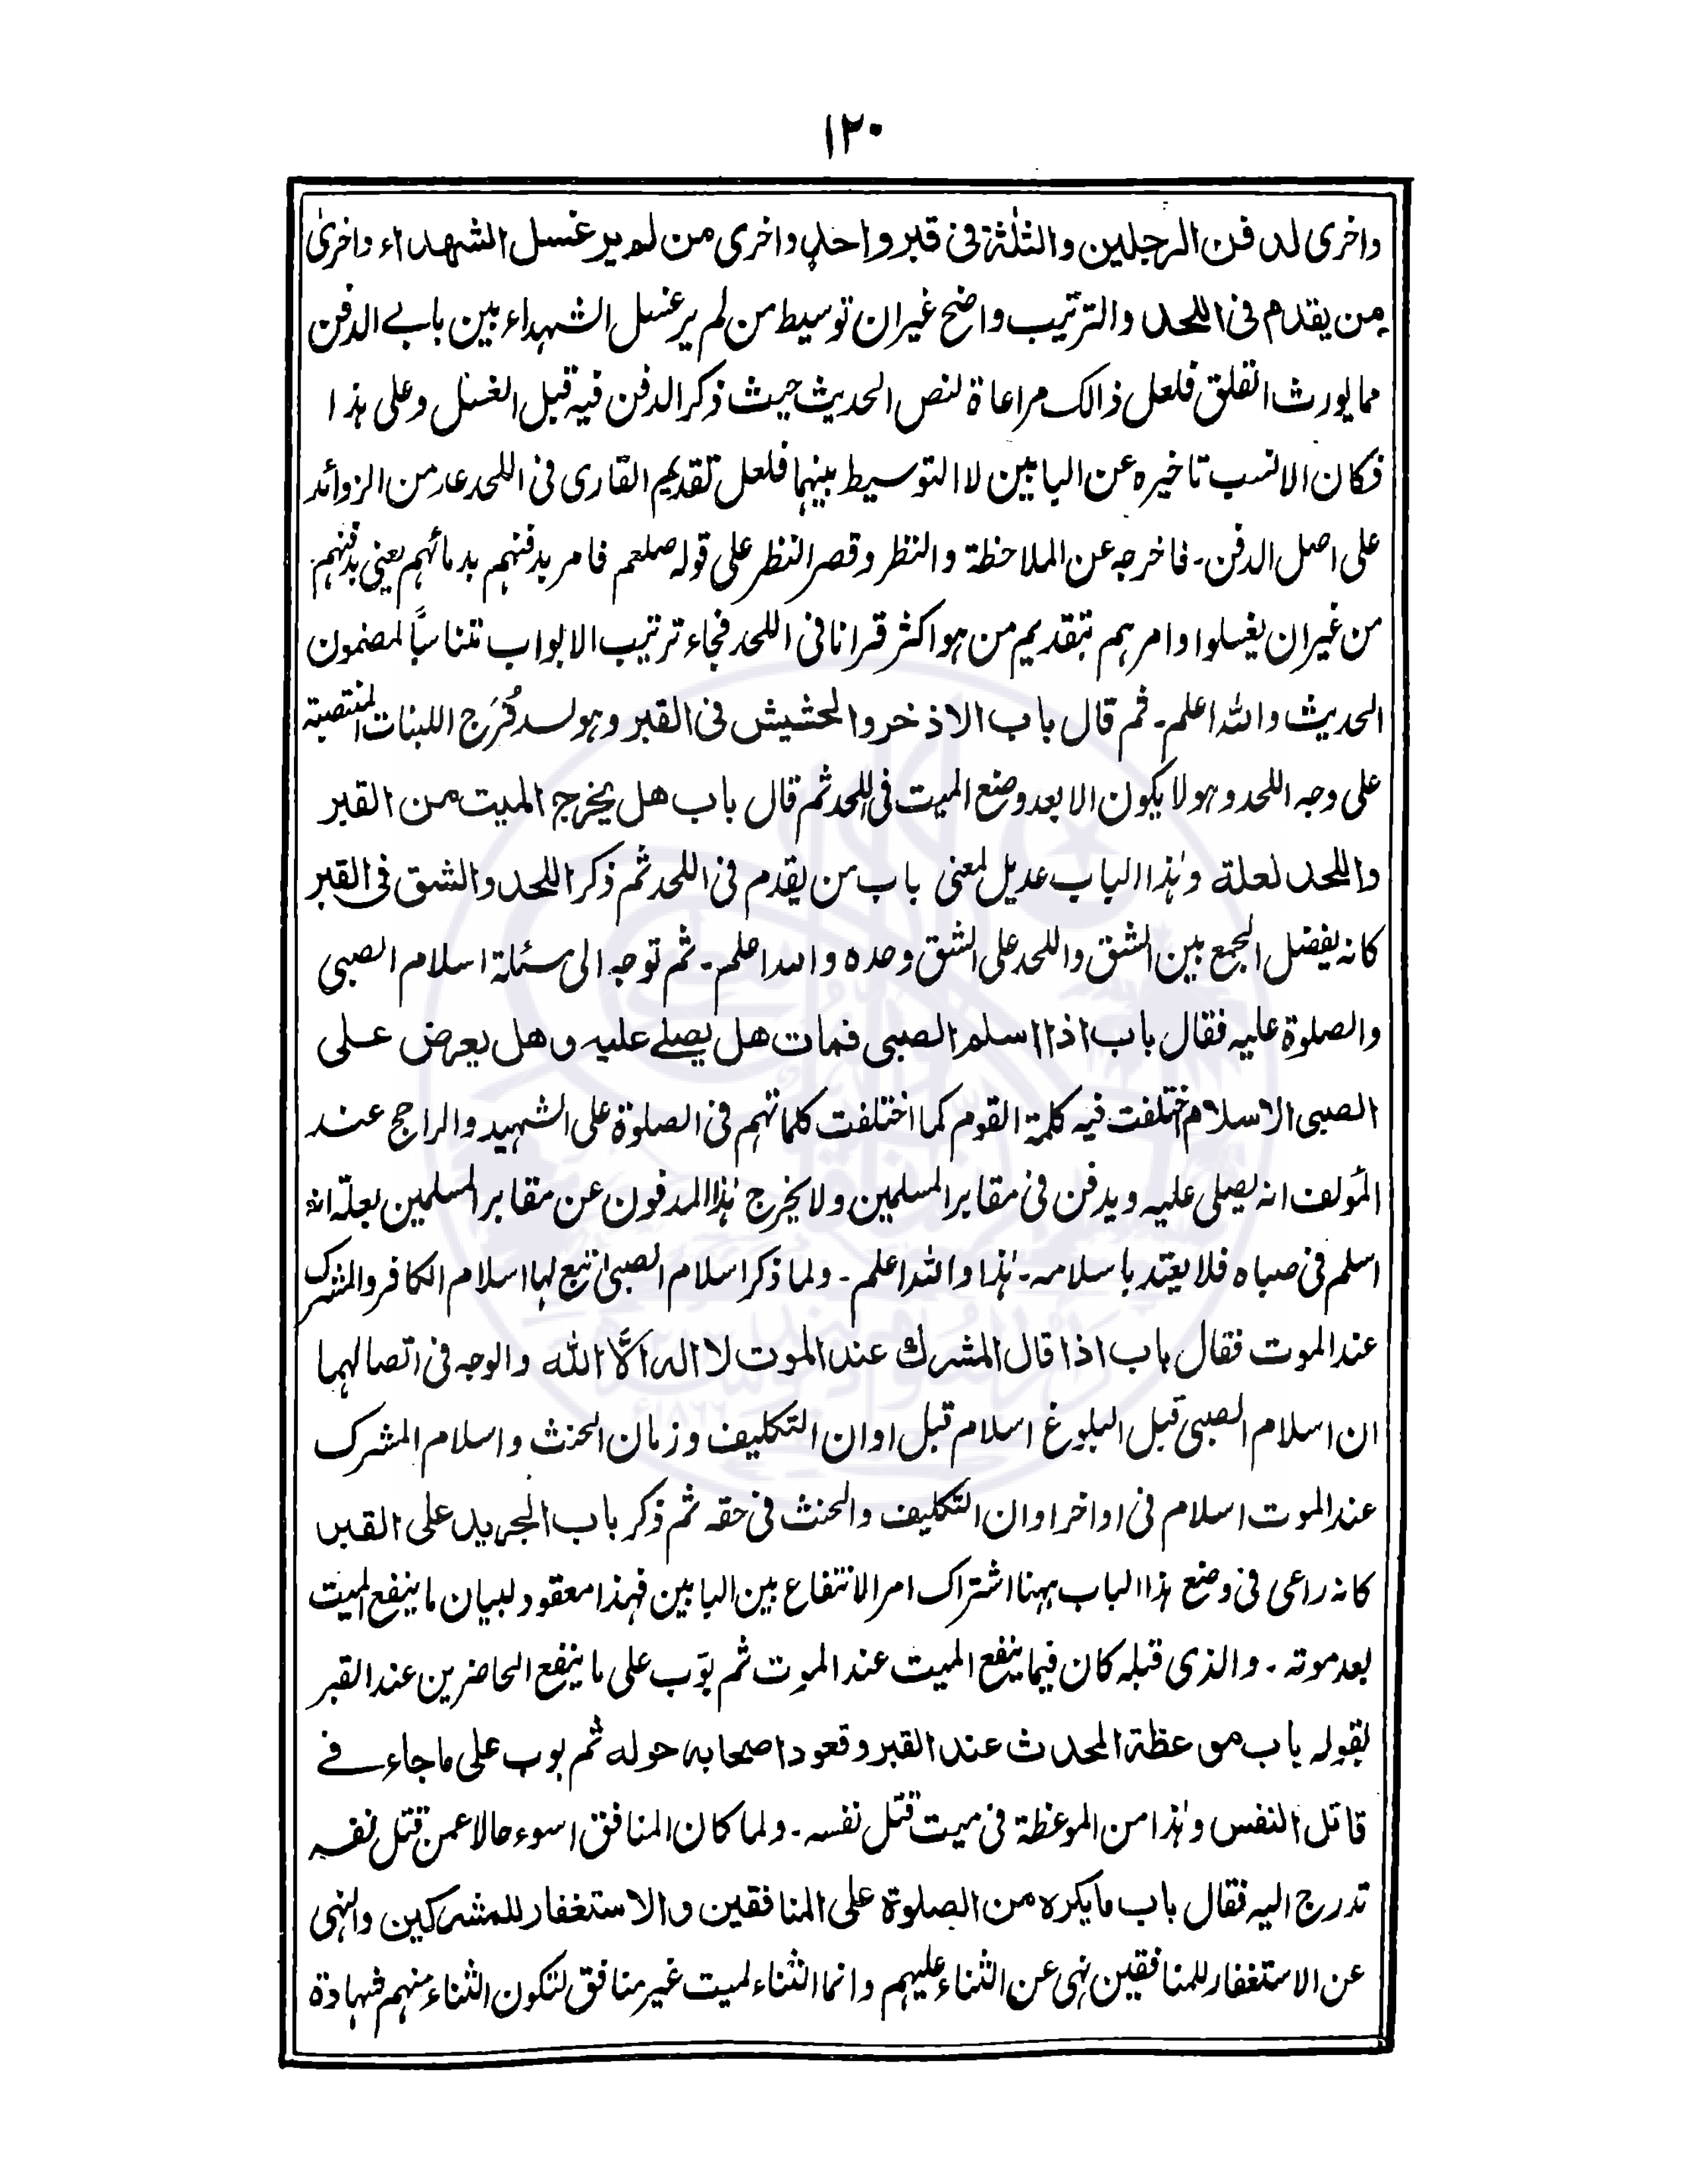 ١٢٠
واخرى لدفن الرجلين والثلٰثة فى قبر واحد واخرى من لم ير غسل الشهداء واخرىٰ
من يقدم فى اللحد والترتيب واضح غير ان توسيط من لم ير غسل الشهداء بين بابے الدفن
مما يورث القلق فلعل ذالك مراعاة لنص الحديث حيث ذكر الدفن فيه قبل الغسل وعلى هذا
فكان الانسب تاخيره عن البابين لا التوسيط بينهما فلعل تقديم القارى فى اللحد عد من الزوائد
على اصل الدفن۔ فاخرجه عن الملاحظة والنظر وقصر النظر على قوله صلعم فامر بدفنهم بدمائهم يعنى بدفنهم
من غير ان يغسلوا وامرهم بتقديم من هو اكثر قرانا فى اللحد فجاء ترتيب الابواب متناسبًا لمضمون
الحديث والله اعلم۔ ثم قال باب الاذخر والحشيش فى القبر وهو لسد فُرَج اللبنات المنتصبة
على وجه اللحد وهو لا يكون الا بعد وضع الميت فى اللحد ثم قال باب هل يخرج الميت من القبر
واللحد لعلة وهٰذا الباب عديل لمعنى باب من يقدم فى اللحد ثم ذكر اللحد والشق فى القبر
كانه يفضل الجمع بين الشق واللحد على الشق وحده والله اعلم۔ ثم توجه الى مسئلة اسلام الصبى
والصلوة عليه فقال باب اذا اسلم الصبى فمات هل يصلے عليه وهل يعرض على
الصبى الاسلام اختلفت فيه كلمة القوم كما اختلفت كلماتهم فى الصلوة على الشهيد والراجح عند
المؤلف انه يصلى عليه ويدفن فى مقابر المسلمين ولا يخرج هٰذا المدفون عن مقابر المسلمين بعلة انه
اسلم فى صباه فلا يعتد باسلامه۔ هٰذا والله اعلم۔ ولما ذكر اسلام الصبى اتبع لها اسلام الكافر والمشرك
عند الموت فقال باب اذا قال المشرك عند الموت لا اله الّا الله والوجه فى اتصالهما
ان اسلام الصبى قبل البلوغ اسلام قبل اوان التكليف وزمان الحنث واسلام المشرك
عند الموت اسلام فى اواخر اوان التكليف والحنث فى حقه ثم ذكر باب الجريد على القبر
كانه راعى فى وضع هذا الباب ههنا اشتراك امر الانتفاع بين البابين فهذا معقود لبيان ما ينفع الميت
بعد موته۔ والذى قبله كان فيما ينفع الميت عند الموت ثم بوّب على ما ينفع الحاضرين عند القبر
بقوله باب موعظة المحدث عند القبر وقعود اصحابه حوله ثم بوب على ما جاء فے
قاتل النفس وهٰذا من الموعظة فى ميت قتل نفسه۔ ولما كان المنافق اسوء حالا عمن قتل نفسه
تدرج اليه فقال باب ما يكره من الصلوة على المنافقين والاستغفار للمشركين والنهى
عن الاستغفار للمنافقين نهى عن الثناء عليهم وانما الثناء لميت غير منافق لتكون الثناء منهم شهادة